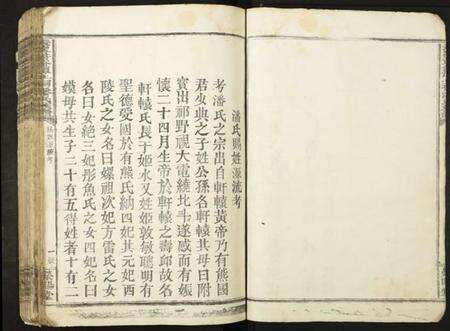 潘氏賜姓源流考
考潘氏之宗出自軒轅黃帝乃有熊國
君少典之子姓公孫名軒轅其母曰附
寶出祁野視大電繞北斗遂感而有娠
懷二十四月生帝於軒轅之壽邱故名
軒轅氏長于姬水又姓姬敦敏聰明有
聖德受國於有熊氏納四妃其元妃西
陵氏之女名曰嫘祖次妃方雷氏之女
名曰女絶三妃彤魚氏之女四妃名曰
嫫母共生子二十有五得姓者十有二